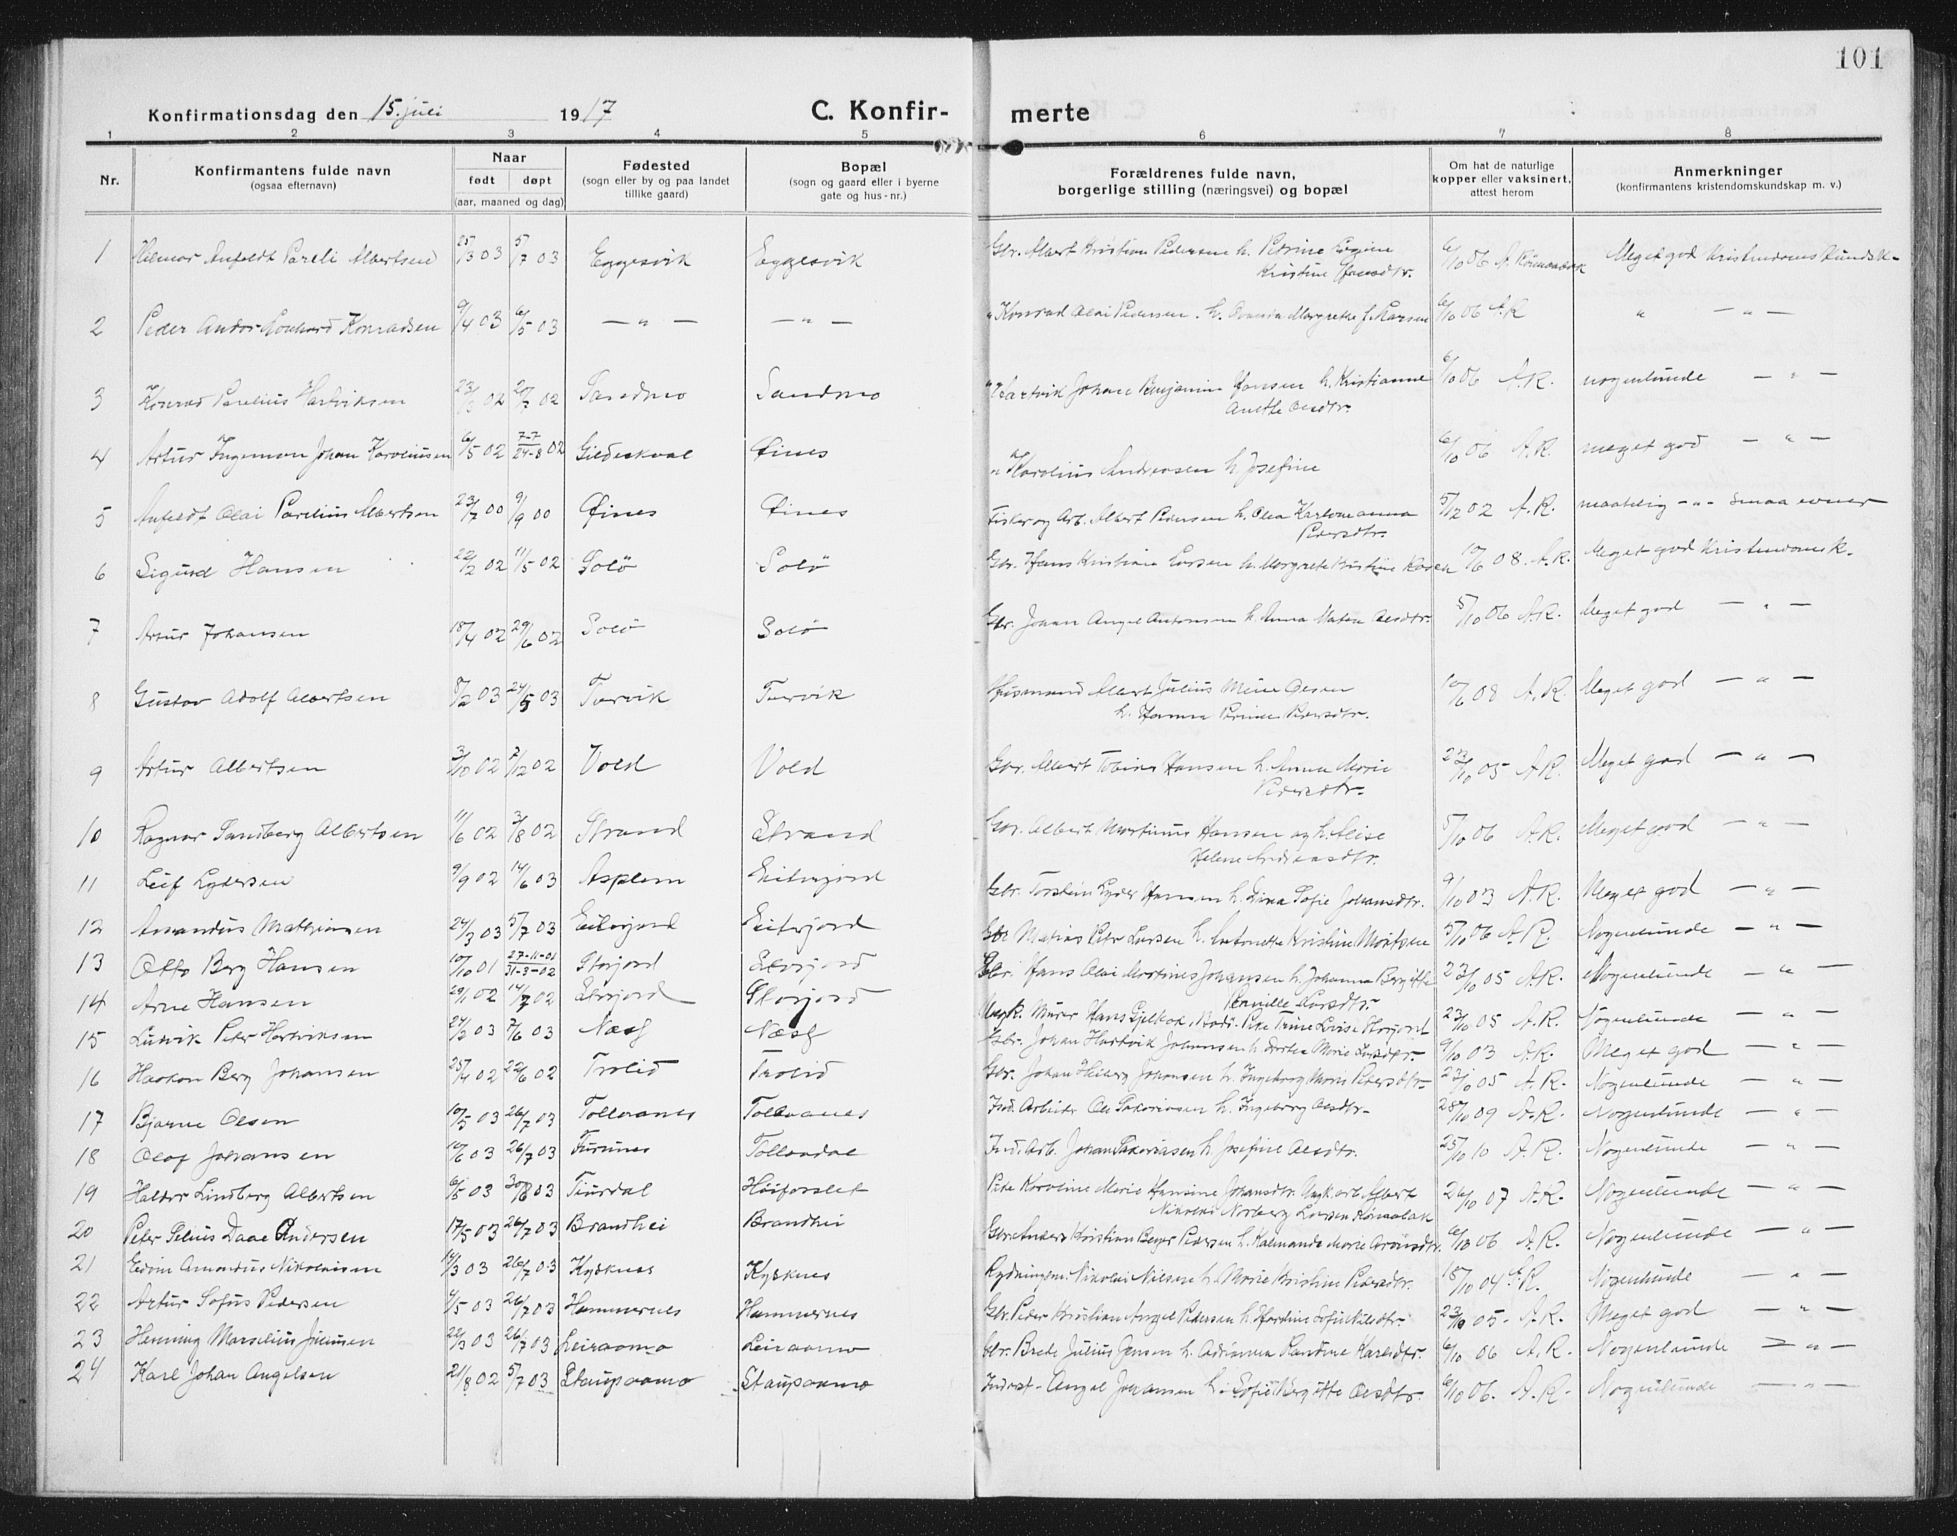 101
Konfirmationsdag den 15. juli 1917 C. Konfir- merte
1 2 3 4 5 6 7 8
Nr. Konfirmantens fulde navn (ogsaa efternavn) Naar født døpt (aar, maaned og dag) Fødested (sogn eller by og paa landet tillike gaard) Bopæl (sogn og gaard eller i byerne gate og hus-nr.) Forældrenes fulde navn, borgerlige stilling (næringsvei) og bopæl Om hat de naturlige kopper eller vaksinert, attest herom Anmerkninger (konfirmantens kristendomskundskap m. v.)
1 Anfeldt Pareli Albertsen 25/3 03 5/7 03 Eggesvik Eggesvik Gbr. Albert Kristian Pedersen h. Petrine
Kristine Hansdtr. 6/10 06 Meget god Kristendomskundsk-
2 Peder Andor Konradsen 9/4 03 6/5 03 — " — — " — " Konrad Olai Pedersen. h. Margrethe Larsen 6/10 06 A.R " — " —
3 Konrad Parelius Hartviksen 02 20/7 02 Sandmo Sandmo " Hartvik Johan Benjamin Hansen h. Kristianne
Anette Olsdtr. 6/10 06 A.R. nogenlunde — " —
4 Artur Ingeman Johan Karoliussen 6/5 02 7-7/24-8 02 Gildeskaal Øines " Karolius Andreasen h. Josefine 6/10 06 A.R. meget god — " —
5 Anfeldt Olai Parelius Albertsen 23/7 00 9/9 00 Øines Øines Fisker og Arb. Albert Pedersen h. Olea
Pedersdtr. 5/12 02 A.R. maatelig — " — smaa evner
6 Sigurd Hansen 22/2 02 11/5 02 Solö Solö Gbr. Hans Kristian Larsen h. Margrete Kristine 10/6 08. A.R. Meget god Kristendomsk.
7 Artur Johansen 18/4 02 29/6 02 Solö Solö Gbr. Johan Angel Antonsen h. Anna Olsdtr. 5/10 06 A.R. Meget god — " —
8 Gustav Adolf Albertsen 8/2 03 24/5 03 Tervik Tervik Husmand Albert Julius Olsen
h. Hanna Pedersdtr. 10/6 08 A.R. Meget god — " —
9 Artur Albertsen 3/10 02 7/12 02 Vold Vold Gbr. Albert Tobias Hansen h. Anna Marie
Pedersdtr. 23/10 05 A.R. Meget god — " —
10 Ragnar Sandberg Albertsen 11/6 02 3/8 02 Strand Strand Gbr. Albert Martinus Hansen og h. Alise
Helene Andreasdtr. 5/10 06 A.R. Meget god — " —
11 Leif Lydersen 9/9 02 14/6 03 Asplem Eiterjord Gbr. Torstein Lyder Hansen h. Lina Sofie Johansdtr. 9/10 03 A.R. Meget god — " —
12 Amandus Mathiasen 24/3 03 5/7 03 Eiterjord Eiterjord Gbr Matias Peter Larsen h. Antonette Kristine 5/10 06 A.R. Nogenlunde — " —
13 Otto Berg Hansen 10/10 01 27-11-01/31-3-02 Storjord Storjord Gbr. Hans Olai Martines Johansen h. Johanna Bergitte
Pernille Larsdtr. 23/10 05 A.R. Nogenlunde — " —
14 Arne Hansen 29/1 02 14/7 02 Storjord Storjord Ungk. Murer Hans Bodö. Pike Trine Lovise Storjord 23/10 05 A.R. Nogenlunde — " —
15 Ludvik Peter Hartviksen 24/2 03 7/6 03 Næss Næss Gbr. Johan Hartvik Johansen h. Dortea Marie Larsdtr. 9/10 03 A.R. Meget god — " —
16 Haakon Berg Johansen 25/4 02 22/6 02 Trolid Trolid Gbr. Johan Heiberg Johansen h. Ingeborg Marie Petersdtr. 23/10 05 A.R. Nogenlunde — " —
17 Bjarne Olsen 10/5 03 26/7 03 Tollaanes Tollaanes Ind. Arbeider Ole Sakariasen h. Ingeborg Olsdtr. 28/10 09 A.R. Nogenlunde — " —
18 Olaf Johansen 10/6 03 26/7 03 Furunes Tollaadal Ind. Arb. Johan Sakariasen h. Josefine Olsdtr. 25/10 10 A.R. Nogenlunde — " —
19 Haldor Lindberg Albertsen 6/5 03 30/8 03 Tiurdal Höiforslet Pike Karoline Marie Hansine Johansdtr. Ungk. arb. Albert
Nikolai Norberg Larsen 26/10 07 A.R. Nogenlunde — " —
20 Peter Selius Daae Andersen 17/5 03 26/7 03 Brandhei Brandhei Gbr. Anders Kristian Beyer Pedersen h. Kalmanda Marie 6/10 06 A.R. Nogenlunde — " —
21 Edvin Amandus Nikolaisen 14/3 03 26/7 03 Kysknes Kysknes Rydningsm. Nikolai Nilsen h. Marie Kristine Pedersdtr. 18/10 04 A.R. Nogenlunde — " —
22 Artur Sofus Pedersen 4/5 03 26/7 03 Hammernes Hammernes Gbr. Peder Kristian Angel Pedersen h. Hartine Sofie Nilsdtr. 23/10 05- A.R. Meget god — " —
23 Henning Marselius Jensen 22/3 03 26/7 03 Leiraamo Leiraamo Gbr. Brede Julius Jensen h. Adrianna Pandine Karlsdtr. 6/10 06 A.R. Nogenlunde — " —
24 Karl Johan Angelsen 21/8 02 5/7 03 Staupaamo Staupaamo Inderst. Angel Johansen h. Sofie Bergitte Olsdtr. 6/10 06. A.R. Nogenlunde — " —